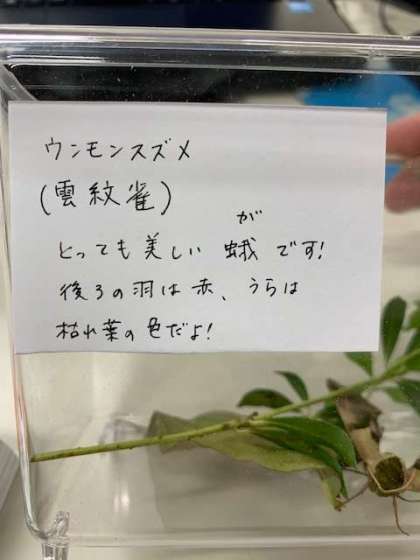 ウンモンスズメ
(雲紋雀)
が
とっても美しい蛾です!
後ろの羽は赤、うらは
枯れ葉の色だよ!